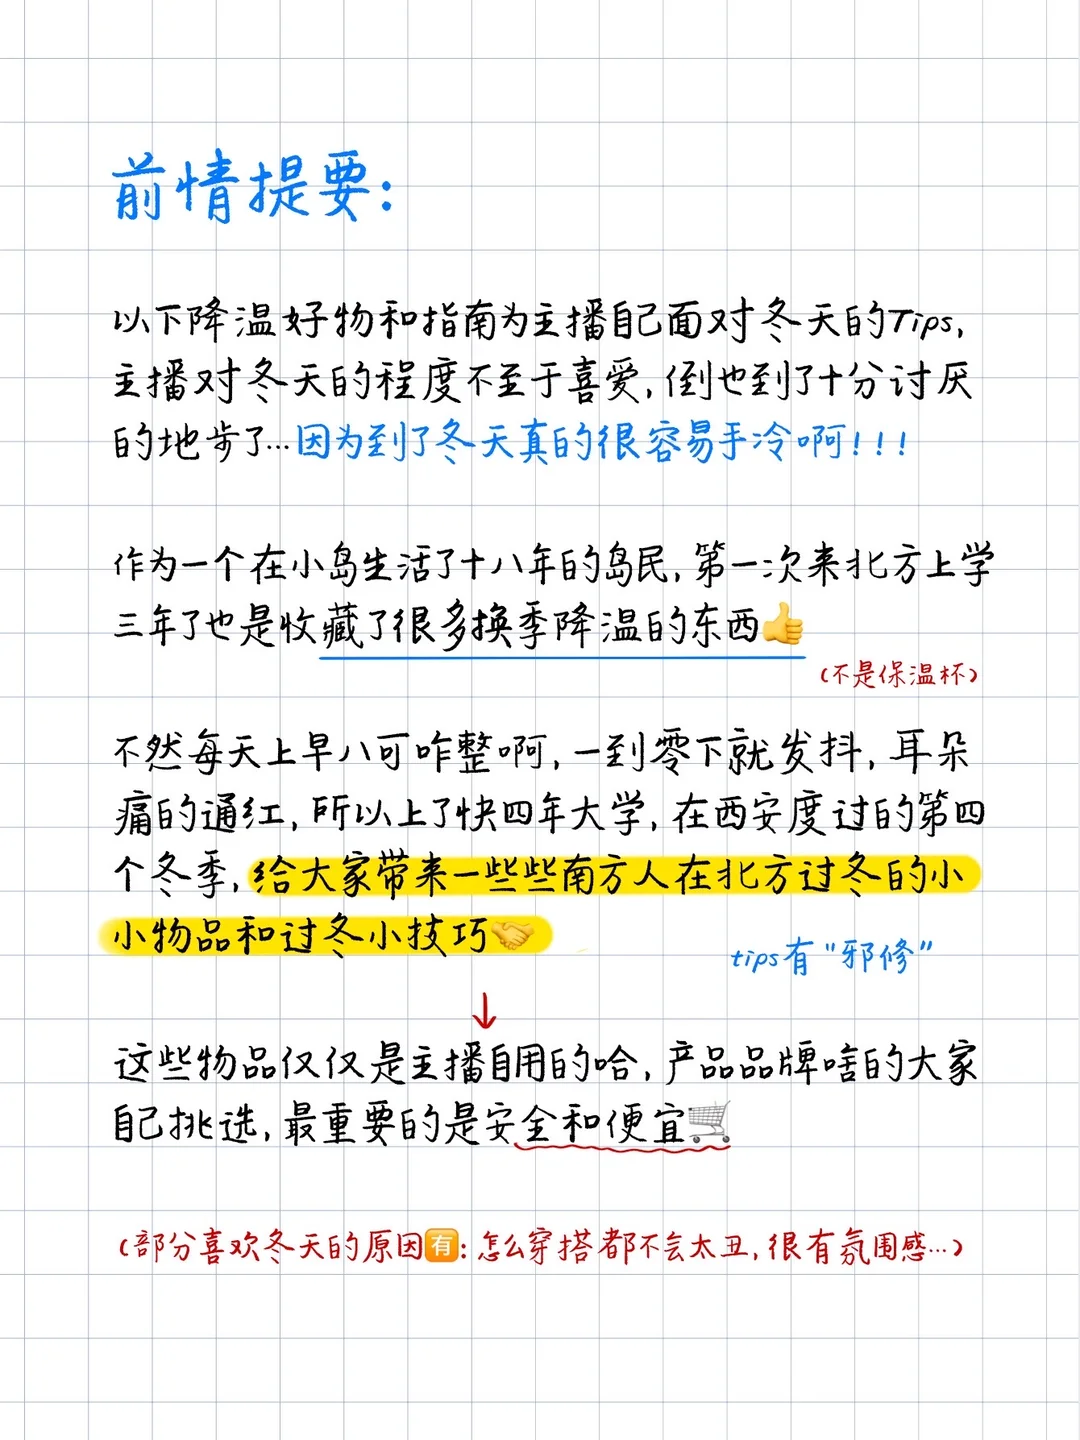 前情提要:
以下降温好物和指南为主播自己面对冬天的Tips,
主播对冬天的程度不至于喜爱,倒也到了十分讨厌
的地步了...因为到了冬天真的很容易手冷啊!!!
作为一个在小岛生活了十八年的岛民,第一次来北方上学
三年了也是收藏了很多换季降温的东西👍
(不是保温杯)
不然每天上早八可咋整啊,一到零下就发抖,耳朵
痛的通红,所以上了快四年大学,在西安度过的第四
个冬季,给大家带来一些些南方人在北方过冬的小
小物品和过冬小技巧🤝
tips有"邪修"
↓
这些物品仅仅是主播自用的哈,产品品牌啥的大家
自己挑选,最重要的是安全和便宜🛒
(部分喜欢冬天的原因🈶:怎么穿搭都不会太丑,很有氛围感...)